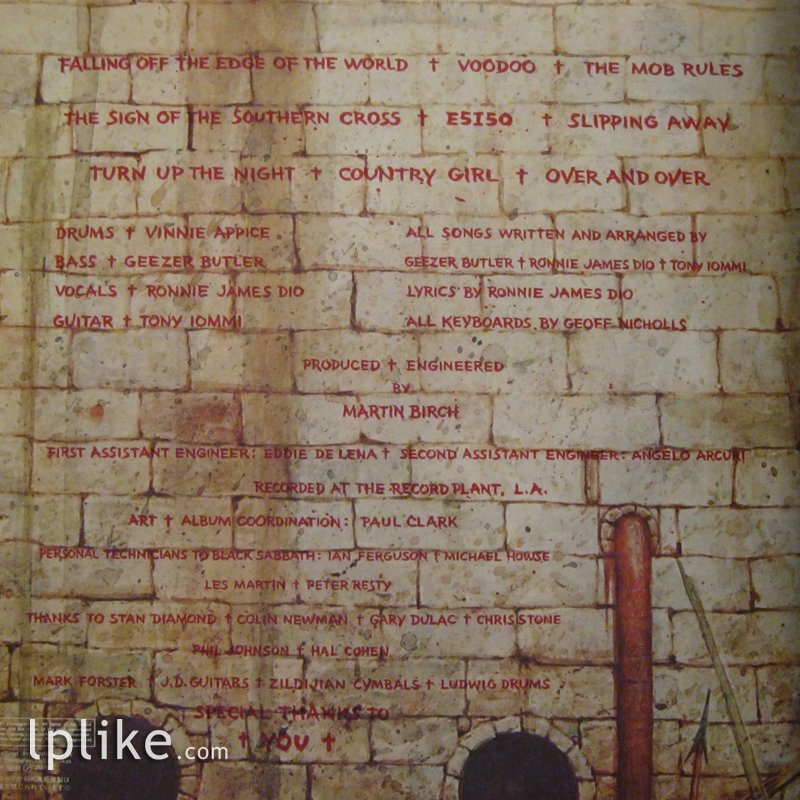 FALLING OFF THE EDGE OF THE WORLD † VOODOO † THE MOB RULES
THE SIGN OF THE SOUTHERN CROSS † E5150 † SLIPPING AWAY
TURN UP THE NIGHT † COUNTRY GIRL † OVER AND OVER
DRUMS † VINNIE APPICE
BASS † GEEZER BUTLER
VOCALS † RONNIE JAMES DIO
GUITAR † TONY IOMMI
ALL SONGS WRITTEN AND ARRANGED BY
GEEZER BUTLER † RONNIE JAMES DIO † TONY IOMMI
LYRICS BY RONNIE JAMES DIO
ALL KEYBOARDS BY GEOFF NICHOLLS
PRODUCED † ENGINEERED
BY
MARTIN BIRCH
FIRST ASSISTANT ENGINEER: EDDIE DE LENA † SECOND ASSISTANT ENGINEER: ANGELO ARCURI
RECORDED AT THE RECORD PLANT, L.A.
ART † ALBUM COORDINATION: PAUL CLARK
PERSONAL TECHNICIANS TO BLACK SABBATH: IAN FERGUSON † MICHAEL HOWSE
LES MARTIN † PETER RESTY
THANKS TO STAN DIAMOND † COLIN NEWMAN † GARY DULAC † CHRIS STONE
PHIL JOHNSON † HAL COHEN
MARK FORSTER † J.D. GUITARS † ZILDIJIAN CYMBALS † LUDWIG DRUMS
SPECIAL THANKS TO
† YOU †
lplike.com